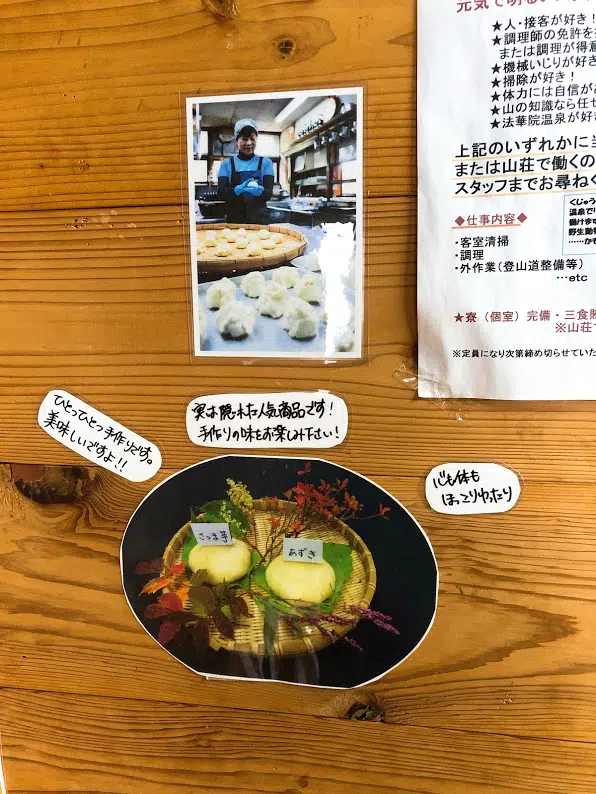 元気で明るい
★人・接客が好き！
★調理師の免許を
または調理が得意
★機械いじりが好き
★掃除が好き！
★体力には自信が
★山の知識なら任せ
★法華院温泉が好き
上記のいずれかに
または山荘で働くの
スタッフまでお尋ねく
◆仕事内容◆
・客室清掃
・調理
・外作業（登山道整備等）
…etc
くじゅう
温泉で
働けま
野生動
……かも
★寮（個室）完備・三食
※山荘
※定員になり次第締め切らせていた
ひとつひとつ手作りです。
美味しいですよ!!
実は隠れた人気商品です！
手作りの味をお楽しみ下さい！
心も体も
ほっこりゆったり
さつま芋
あずき